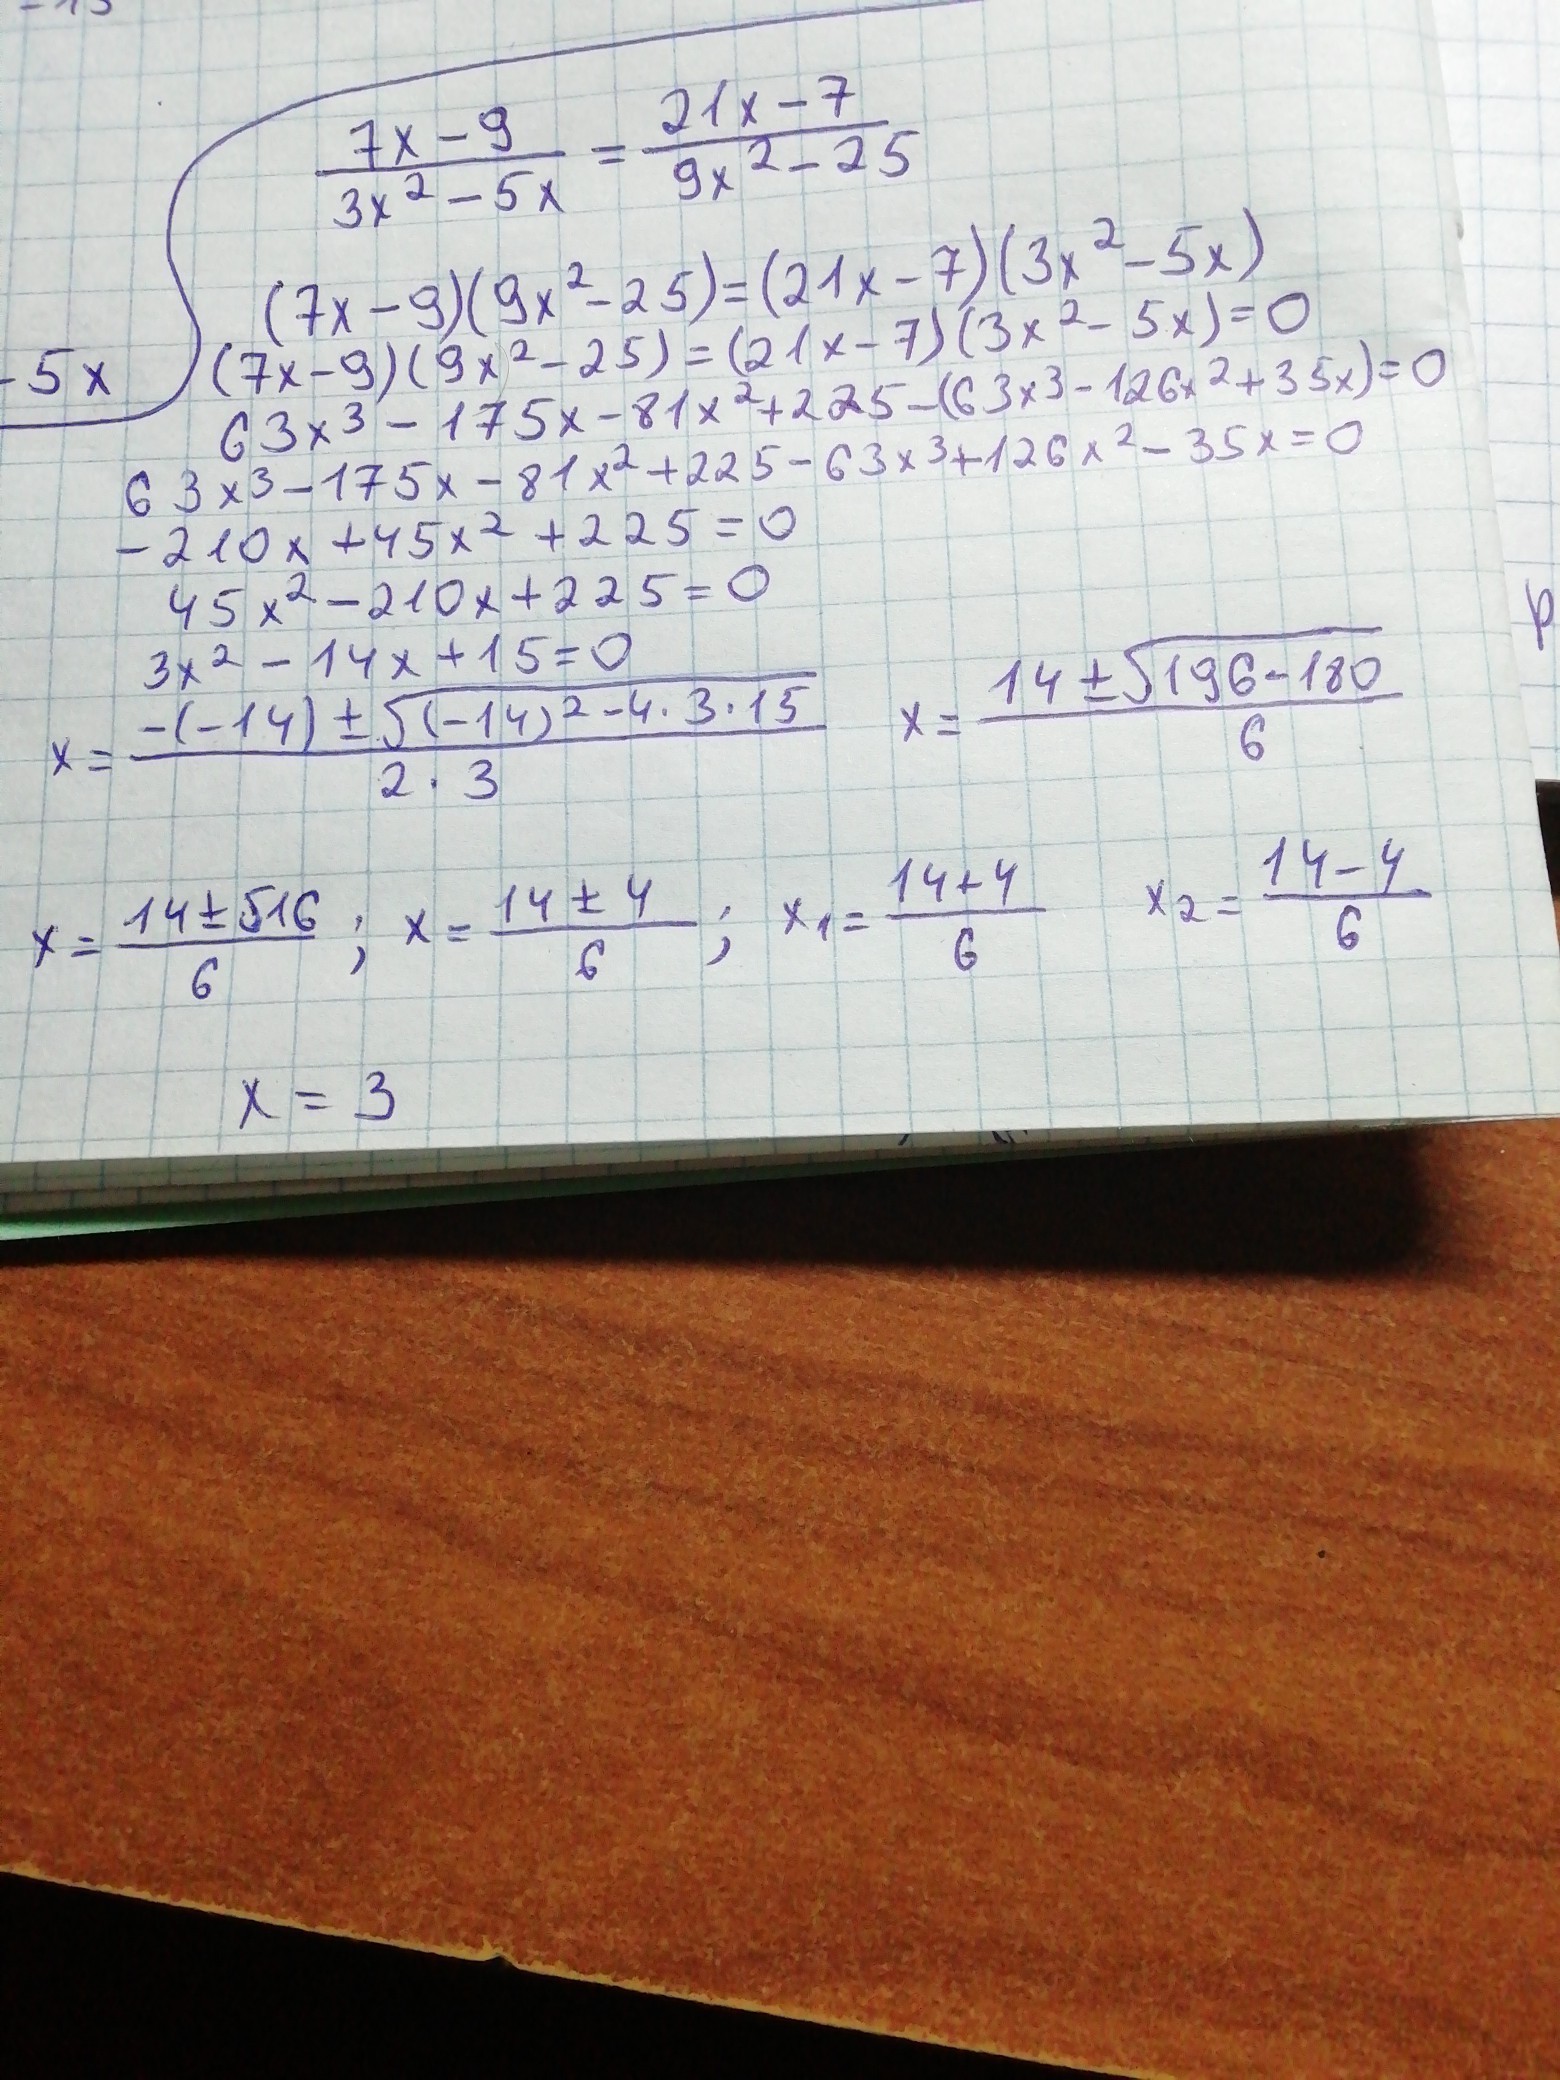 -15
7x-9/3x²-5x = 21x-7/9x²-25
(7x-9)(9x²-25)=(21x-7)(3x²-5x)
-5x
(7x-9)(9x²-25)=(21x-7)(3x²-5x)=0
63x³-175x-81x²+225-(63x³-126x²+35x)=0
63x³-175x-81x²+225-63x³+126x²-35x=0
-210x+45x²+225=0
45x²-210x+225=0
3x²-14x+15=0
x= -(-14)±√(-14)²-4·3·15/2·3 x= 14±√196-180/6
x= 14±√16/6; x= 14±4/6; x₁= 14+4/6 x₂= 14-4/6
x=3